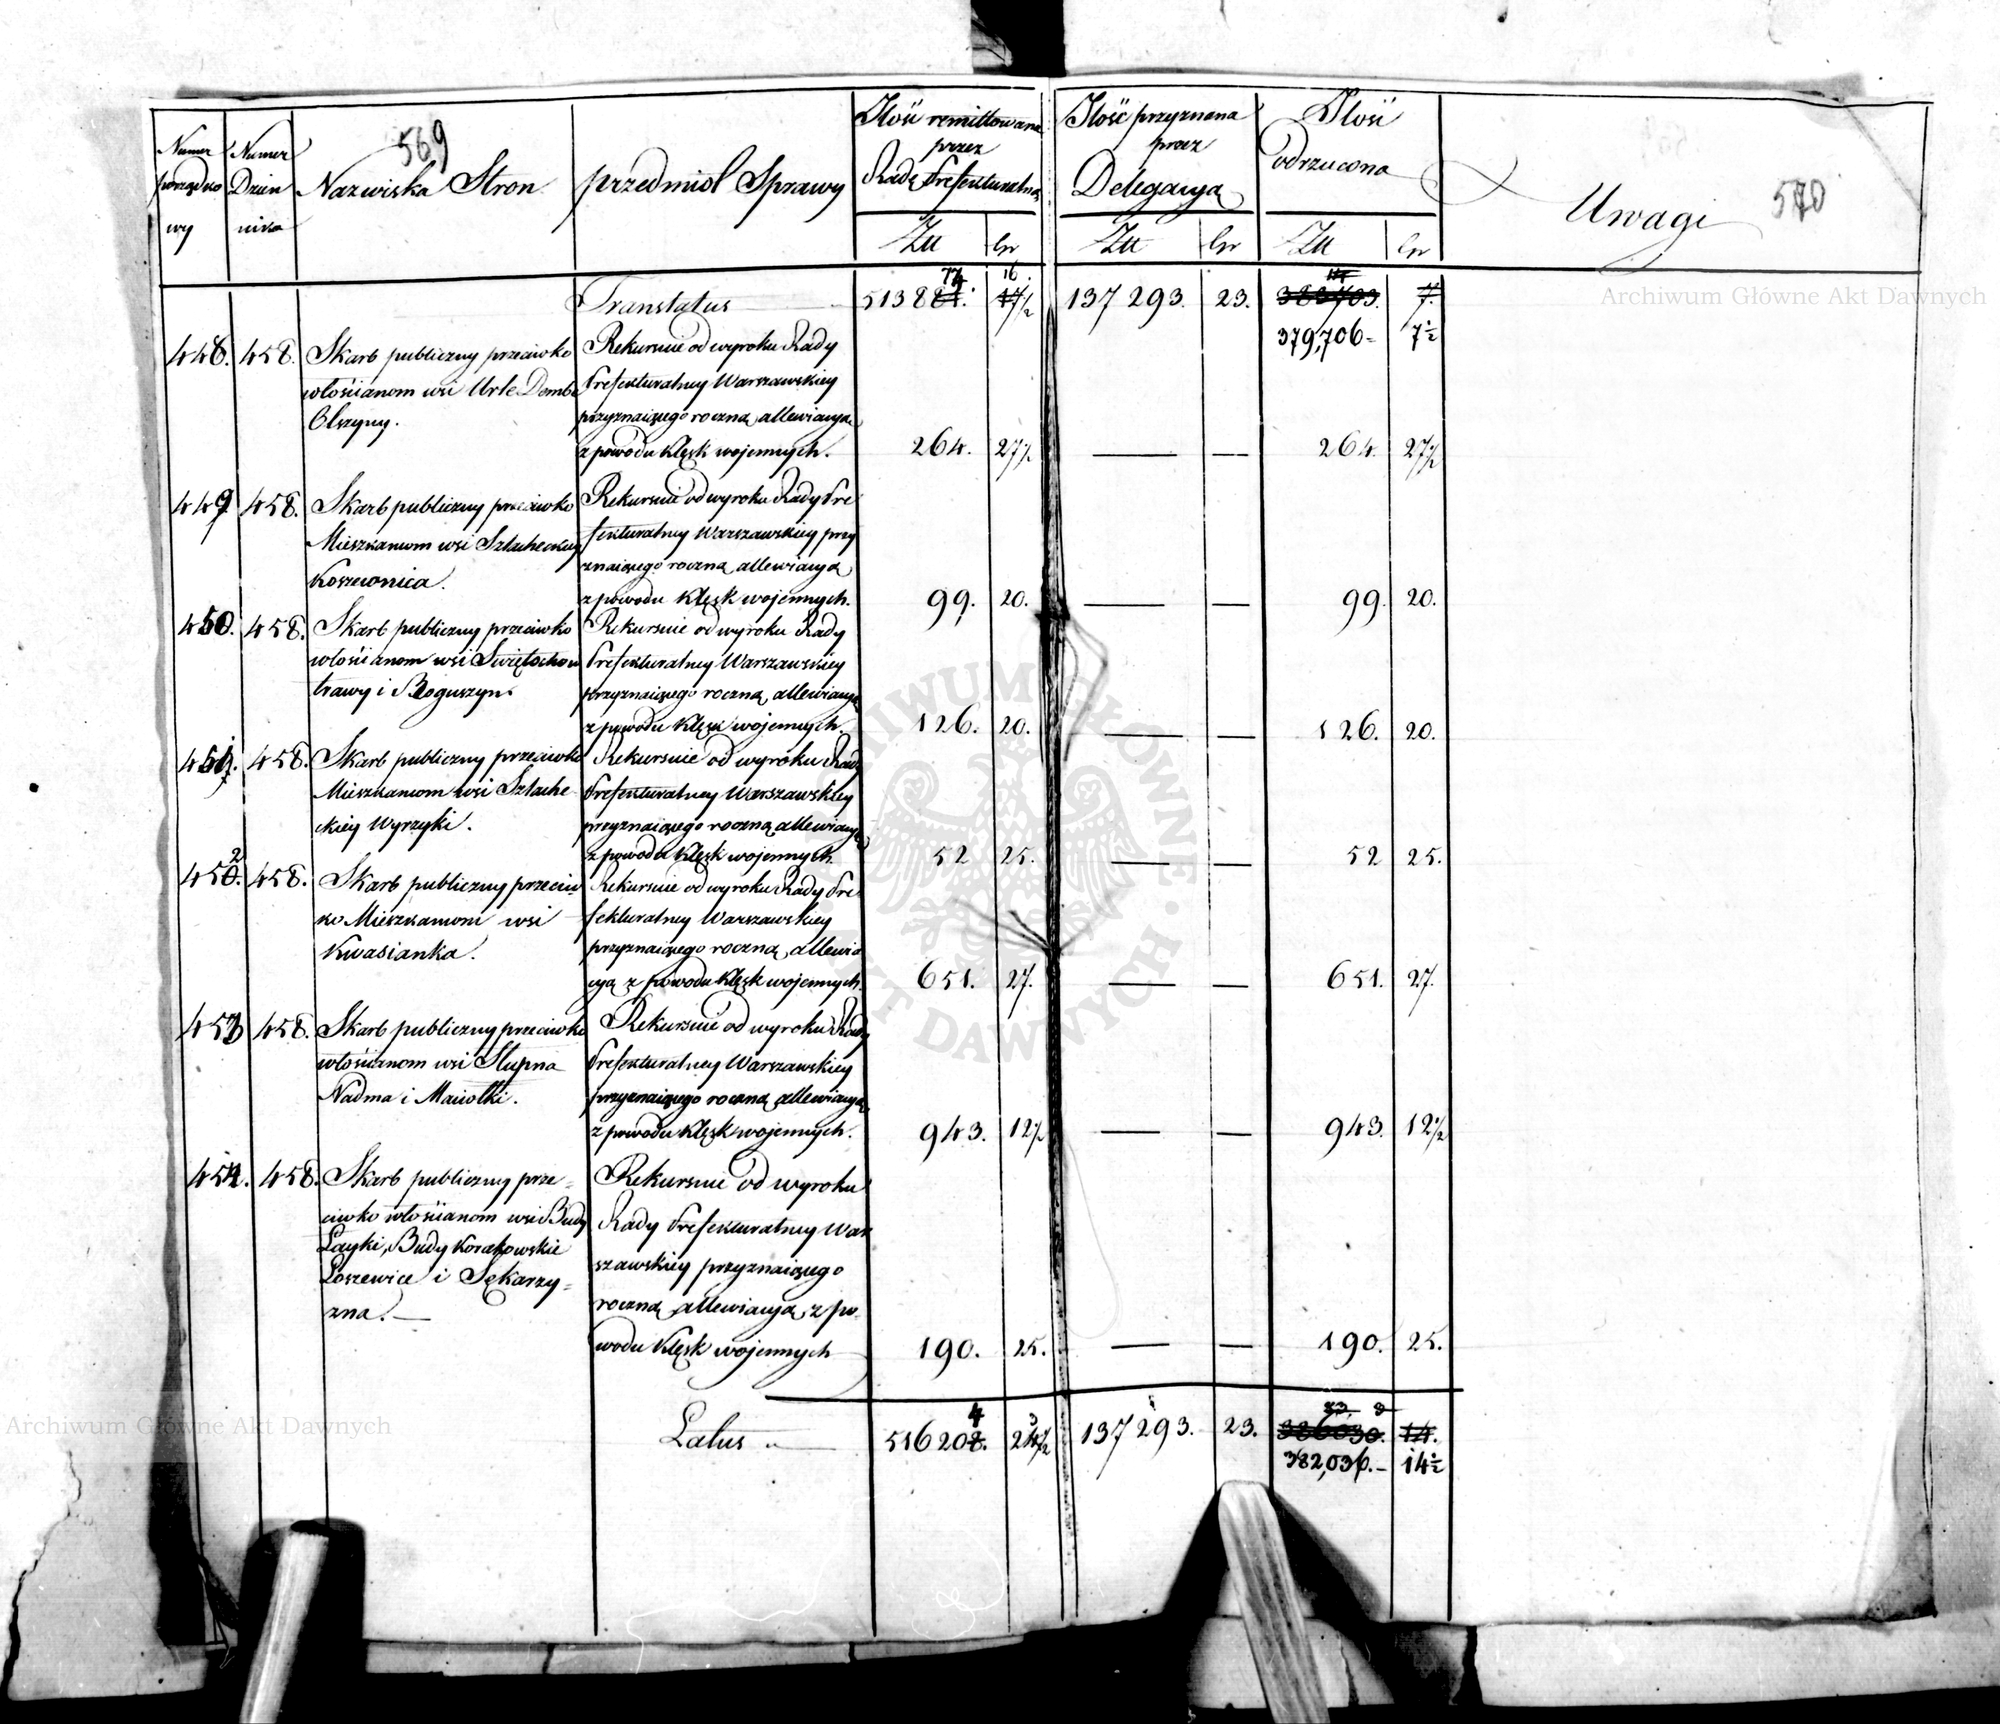 569
570
Numer porządkowy
Numer Dziennika
Nazwiska Stron
przedmiot Sprawy
Ilość remittowana przez Radę Prefekturalną
Ilość przyznana przez Delegacyą
Ilość odrzucona
Uwagi
Złł Gr Złł Gr Złł Gr
Translatus 137 293. 23.
379,706 7½
448. 458. Skarb publiczny przeciwko
włościanom wsi Urle Dembe
Olszyny.
Rekursuie od wyroku Rady
Prefekturalney Warszawskiey
przyznaiącego roczną allewiacyą
z powodu klęsk wojennych. 264. 27½ — — 264. 27½
449 458. Skarb publiczny przeciwko
Mieszkańcom wsi Szlacheckiey
Koszewnica.
Rekursuie od wyroku Rady Pre
fekturalney Warszawskiey przy
znaiącego roczną allewiacyą
z powodu klęsk wojennych. 99. 20. — — 99. 20.
450. 458. Skarb publiczny przeciwko
włościanom wsi
trawy i Boguszyn.
Rekursuie od wyroku Rady
Prefekturalney Warszawskiey
przyznaiącego roczną allewiacyą
z powodu klęsk wojennych. 126. 20. — — 126. 20.
451. 458. Skarb publiczny przeciwko
Mieszkańcom wsi Szlache
ckiey Wyrzyki.
Rekursuie od wyroku Rady
Prefekturalney Warszawskiey
przyznaiącego roczną allewiacyą
z powodu klęsk wojennych 52 25. — — 52 25.
452. 458. Skarb publiczny przeciw
ko Mieszkańcom wsi
Kwasianka.
Rekursuie od wyroku Rady Pre
fekturalney Warszawskiey
przyznaiącego roczną allewia
cyą z powodu klęsk wojennych. 651. 27. — — 651. 27.
453 458. Skarb publiczny przeciwko
włościanom wsi Słupna
Nadma i Maciołki.
Rekursuie od wyroku Rady
Prefekturalney Warszawskiey
przyznaiącego roczną allewiacyą
z powodu klęsk wojennych. 943. 12½ — — 943. 12½
454. 458. Skarb publiczny prze=
ciwko włościanom wsi Budy
Łayki, Budy Korakowskie
Łoszewice i Sękarzy=
zna.—
Rekursuie od wyroku
Rady Prefekturalney War
szawskiey przyznaiącego
roczną allewiacyą z po
wodu klęsk wojennych 190. 25. — — 190. 25.
Latus 137 293. 23.
382,036.— 14½
Archiwum Główne Akt Dawnych
Archiwum Główne Akt Dawnych